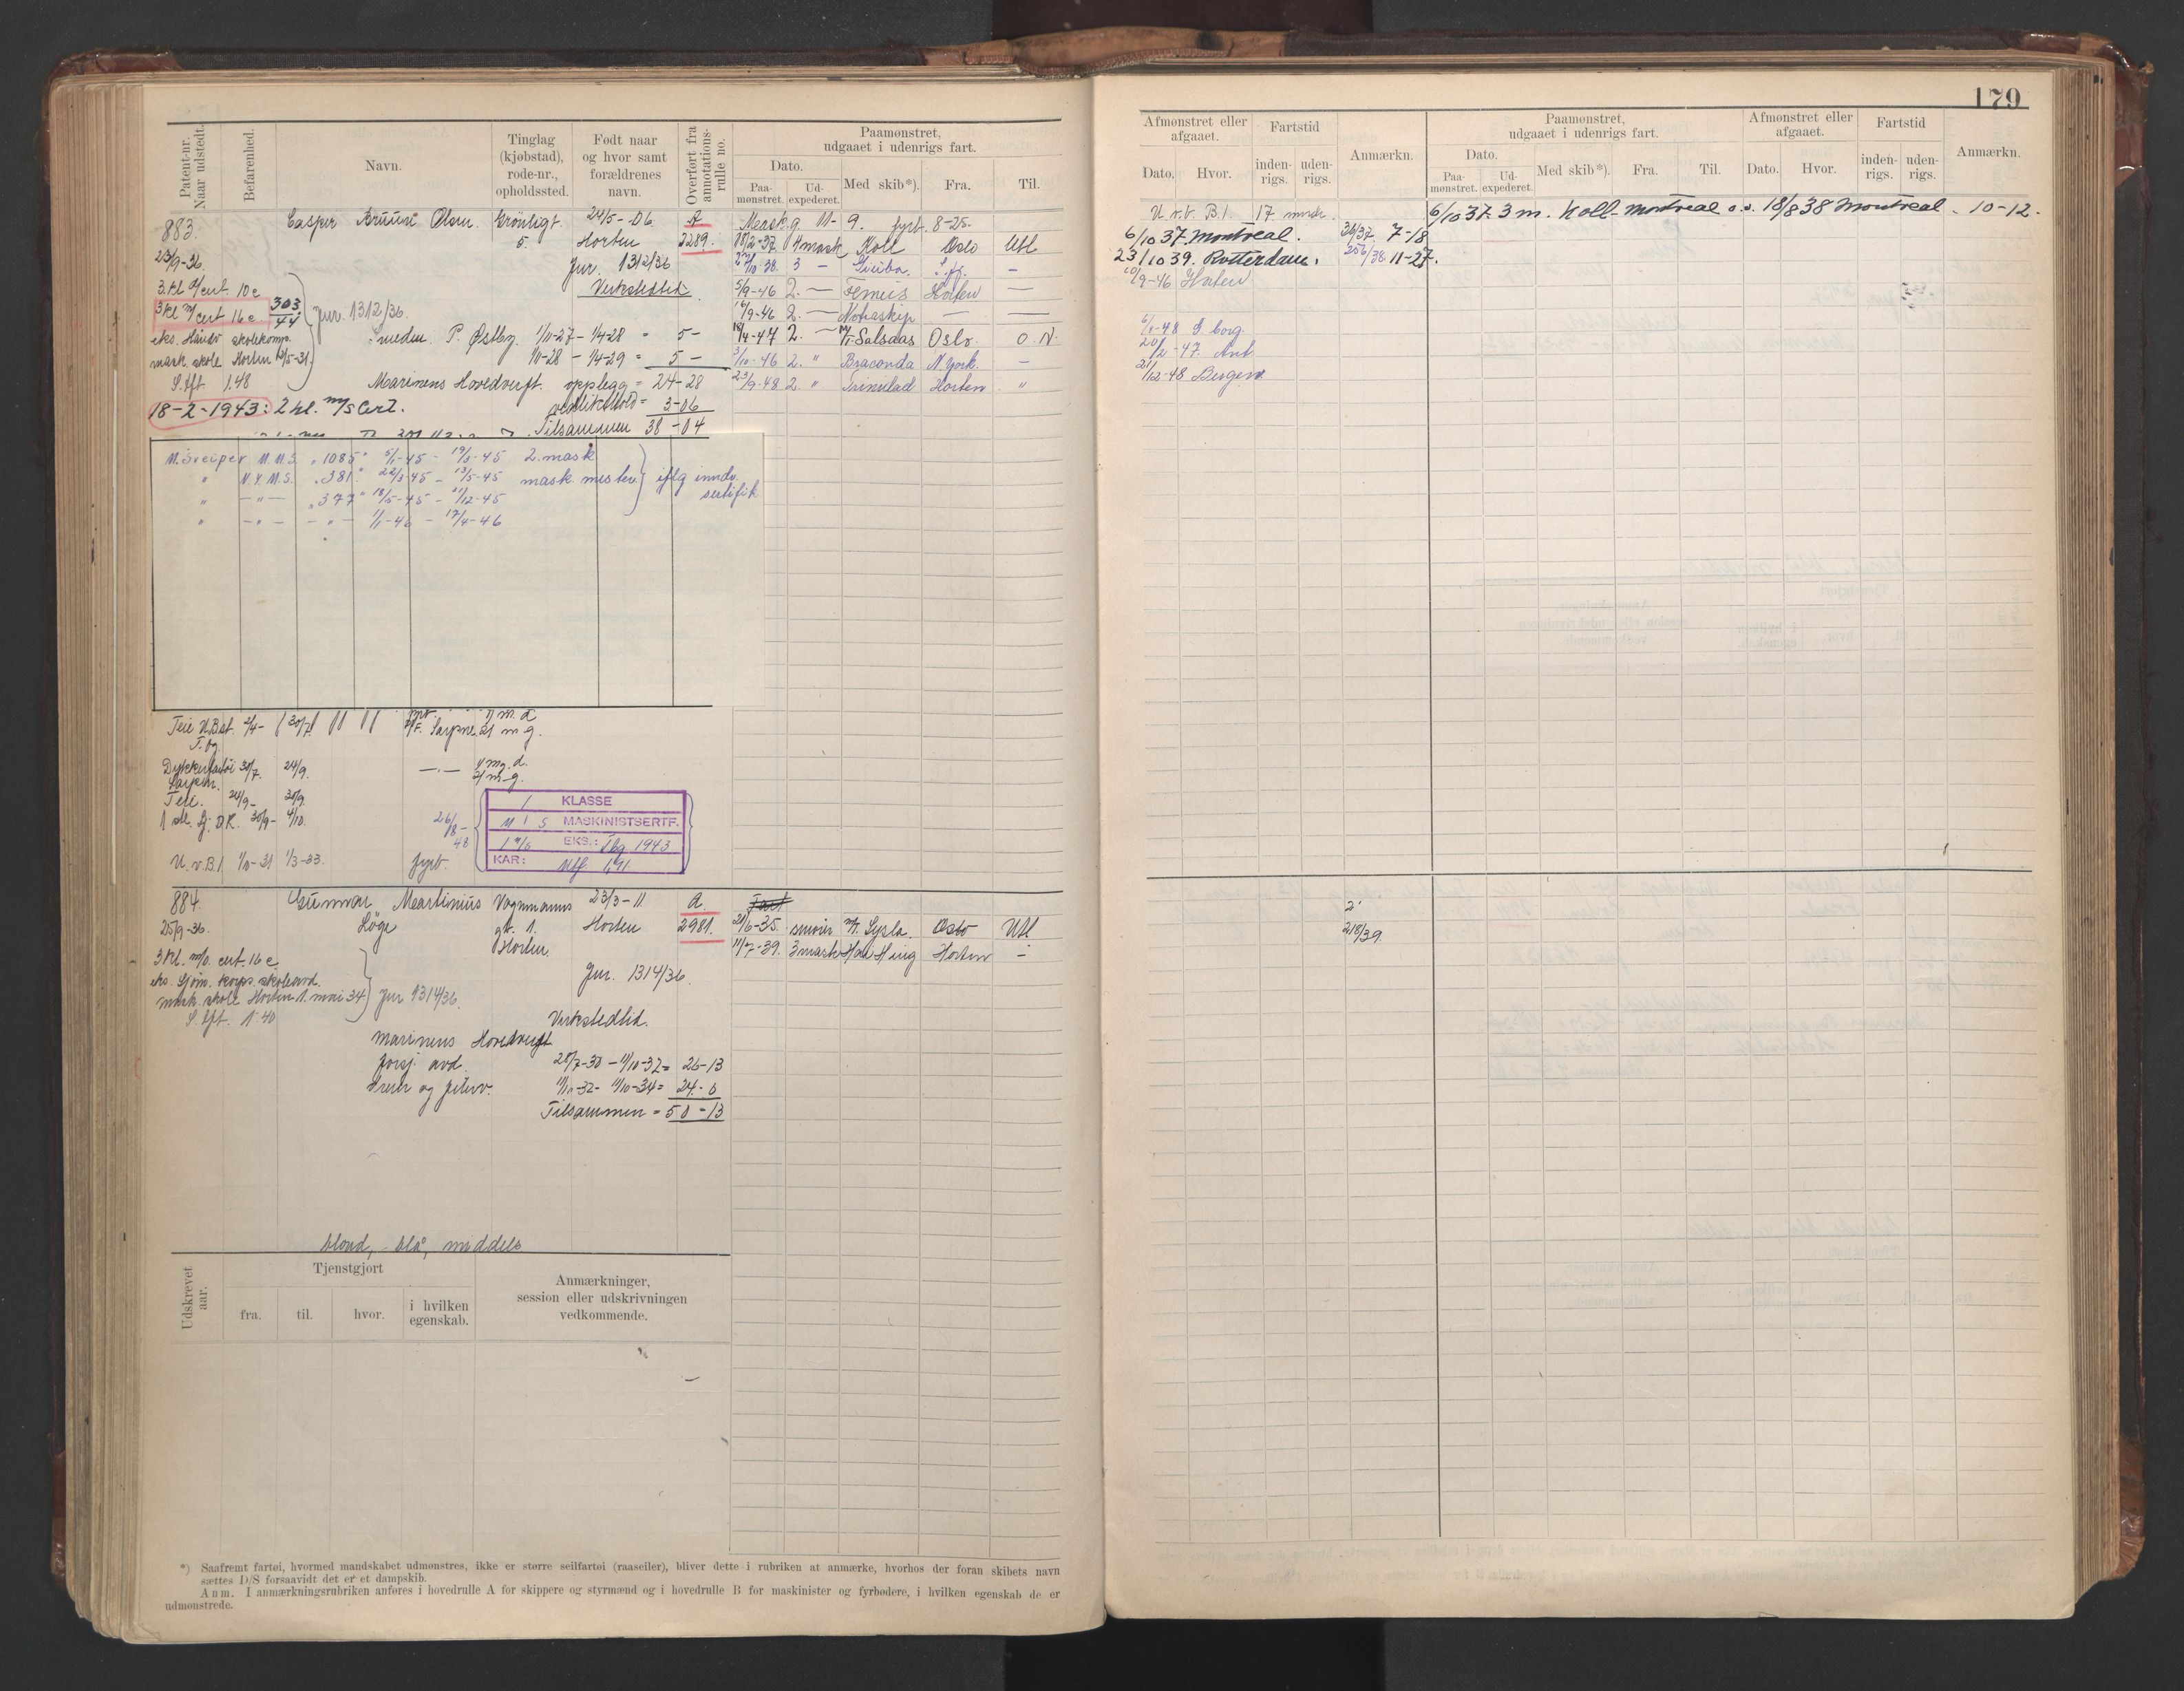 179
Patent-nr. Naar udstedt.
Befarenhed.
Navn.
Tinglag (kjøbstad), rode-nr., opholdssted.
Født naar og hvor samt forældrenes navn.
Overført fra annotations-rulle no.
Paamønstret, udgaaet i udenrigs fart.
Dato.
Paa-mønstret.
Ud-expederet.
Med skib*).
Fra.
Til.
Afmønstret eller afgaaet.
Dato.
Hvor.
Fartstid
inden-rigs.
uden-rigs.
Anmærkn.
Paamønstret, udgaaet i udenrigs fart.
Dato.
Paa-mønstret.
Ud-expederet.
Med skib*).
Fra.
Til.
Afmønstret eller afgaaet.
Dato.
Hvor.
Fartstid
inden-rigs.
uden-rigs.
Anmærkn.
883. Casper Bruun Olsen. Grønligt. 5. 24/5-06 Horten A 2289.
23/9-36
Jur. 1312/36
Verkstedtid
3. kl cert. 10 c
3 kl m/cert 16 c 303/44
Jur. 1312/36.
eks. skolekomp.
mask. skole Horten 10/5-31.
S. fft 1.48
18-2-1943: 2 kl. m/s Cert.
P. Østby 1/11-27 - 1/4-28 = 5 -
1/10-28 - 1/4-29 = 5 -
Marinens Hovedverft. opplegg = 24-28
vedlikehold = 3-06
Tilsammen 38-04
Mask g. 11-9. fyrb. 8-25-
10/2-37 4 mask Koll Oslo Utl
10-38. 3 -
5/9-46 2. — Horten —
16/9-46 2. — — —
18/4-47 2. — M/T Salsaas Oslo. O. N.
3/10-46 2. " Braconda N York. —
23/9-48 2. " Trinidad Horten "
U.v.B.1. 17 mndr.
6/10 37 Montreal. 7-18
23/10 39. Rotterdam. 256/38. 11-27.
10/9-46 Horten
6/1-48 S. borg.
20/2-47. Ant
21/12-48 Bergen
6/10 37. 3 m. Koll - Montreal o.s. 18/8 38 Montreal. 10-12.
M. Sveiper M.M.S. "1085" 5/1-45 - 19/3-45 2. mask
" N.Y.M.S. "381" 22/3-45 - 13/5-45 mask. mester
" —"— "377" 18/5-45 - 31/12-45
" —"— —"— 1/1-46 - 17/4-46
iflg inndr. sertifik
Teie U.B.st. 2/4- 30/7
T. bg
30/7. 24/9.
Teie. 24/9- 30/9.
30/9- 4/10.
U.v.B.1. 1/10-31 1/3-33. fyrb.
26/8-48
1 KLASSE
M S MASKINISTSERTF.
EKS.: Tbg 1943
KAR:
884. Gunnar Martinius Løge
Vognmanns gt. 1. Horten
23/3-11 Horten
A. 2981.
25/9-36.
3 kl. m/o. cert. 16 c.
eks. Sjøm. korps. skoleavd.
mask. skole Horten 1. mai 34
Jur 1314/36
S. fft. 1:40
Jur. 1314/36.
Verkstedtid.
Marinens Hovedverft
forsj. avd. 28/7-30 - 11/10-32 = 26-13
11/10-32 - 11/10-34 = 24-0
Tilsammen = 50-13
21/6-35. smører M/T. Sysla. Oslo Utl
11/7-39. 3 mask Hai Hing Horten -
218/39
blond, blå, middels
Udskrevet aar.
Tjenstgjort
fra.
til.
hvor.
i hvilken egenskab.
Anmærkninger, session eller udskrivningen vedkommende.
*) Saafremt fartøi, hvormed mandskabet udmønstres, ikke er større seilfartøi (raaseiler), bliver dette i rubriken at anmærke, hvorhos der foran skibets navn
sættes D/S forsaavidt det er et dampskib.
Anm. I anmærkningsrubriken anføres i hovedrulle A for skippere og styrmænd og i hovedrulle B for maskinister og fyrbødere, i hvilken egenskab de er
udmønstrede.